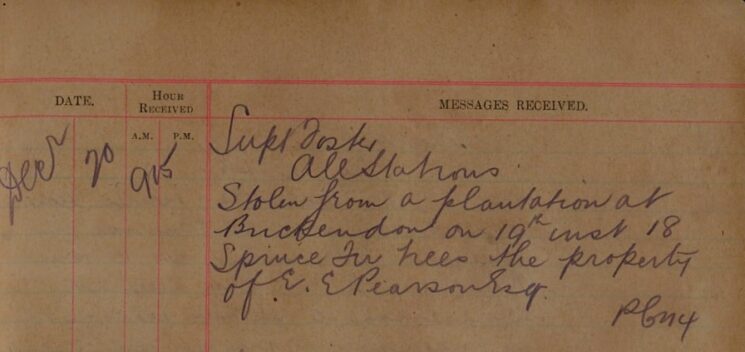 DATE.
HOUR RECEIVED
MESSAGES RECEIVED.
A.M. P.M.
Decr 20 915
Supt Foster
All Stations
Stolen from a plantation at
Brickendon on 19th inst 18
Spruce Fir trees the property
of E. E Pearson Esq